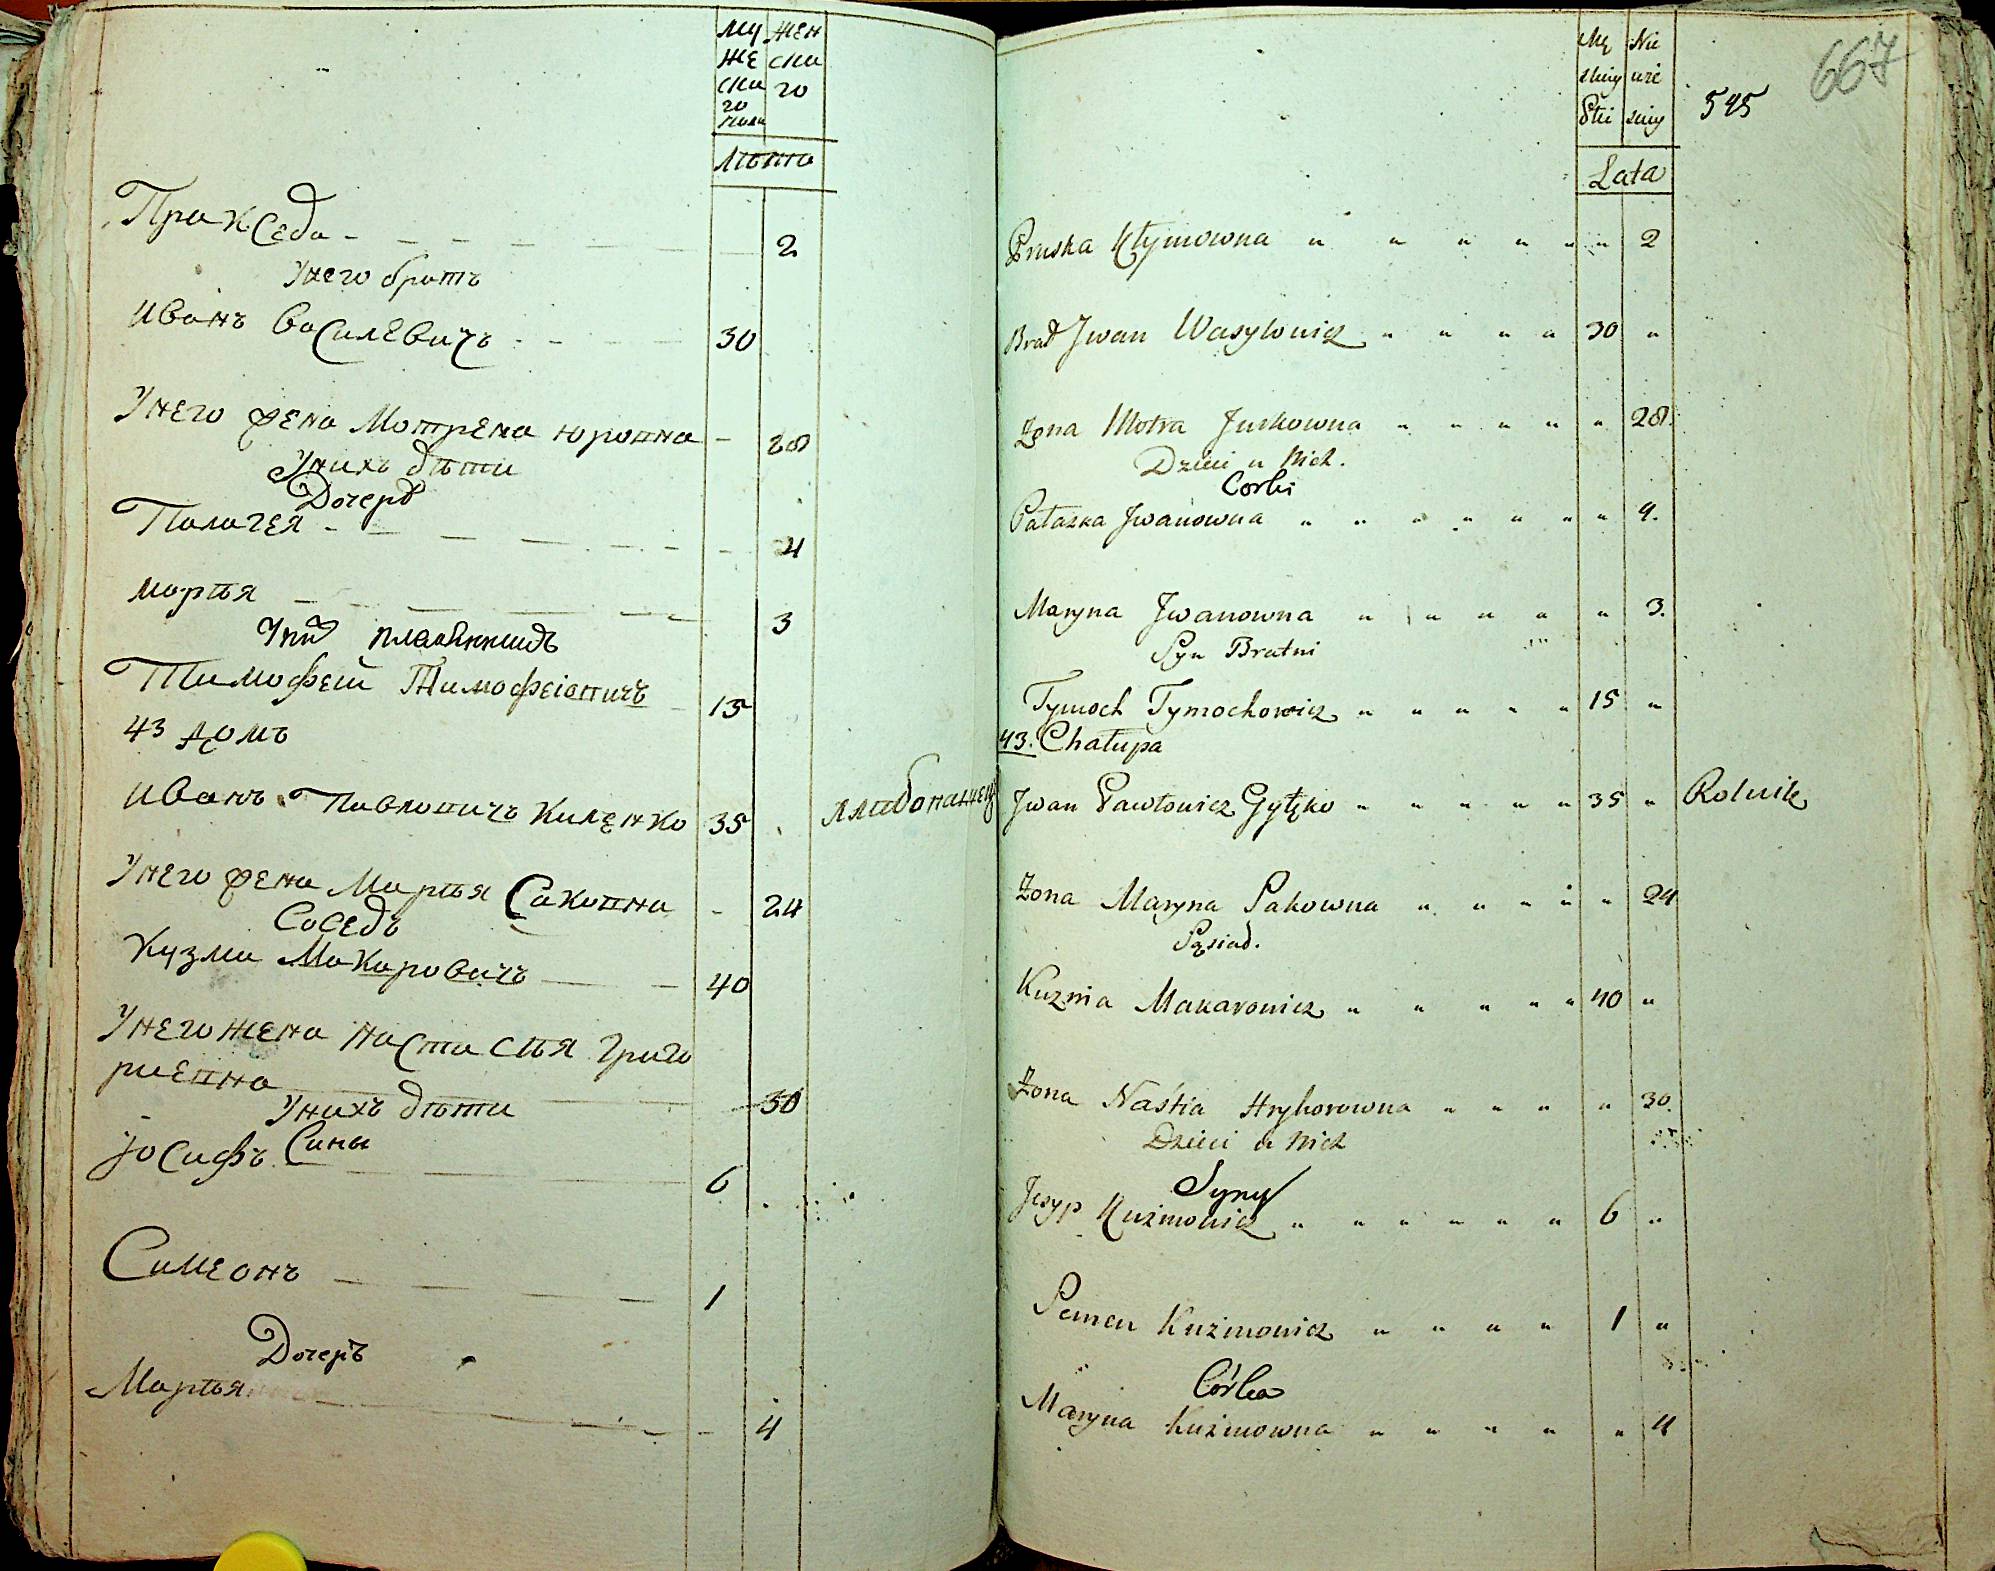 му жен
же ска
ска го
го
пола
Лѣта
Пракседа 2
У него братъ
Иванъ Василевичъ 30
У него жена Мотрена Юровна 28
У нихъ дѣти
Дочерѣ
Палагея 4
Марья 3
Тимофей Тимофеіовичъ 15
43 домъ
Иванъ Павловичъ Киленко 35
У него жена Марья Саковна 24
Соседъ
Кузма Макаровичъ 40
У него жена Настасья Григо
риевна 30
У нихъ дѣти
Сины
Іосифъ 6
Симеонъ 1
Дочеръ
Марья 4
667
595
Lata
Pruska Kłymowna " " " " " " 2
Brat Jwan Wasylowicz " " " " 30 "
Żona Motra Jurkowna " " " " " 28.
Dzieci u Nich.
Corki
Pałazka Jwanowna " " " " " " " 4.
Maryna Jwanowna " " " " " " 3.
Syn Bratni
Tymoch Tymochowicz " " " " " 15 "
43. Chałupa
Jwan Pawłowicz Gyłęko " " " " " 35 " Rolnik
Żona Maryna Sakowna " " " " " 24
Sąsiad.
Kuzma Makarowicz " " " " " 40 "
Żona Naśtia Hryhorowna " " " " 30.
Dzieci u Nich
Syny
Jesyp Kuźmowicz " " " " " " 6 "
Semen Kuźmowicz " " " " 1 "
Córka
Maryna Kuźmowna " " " " " 4